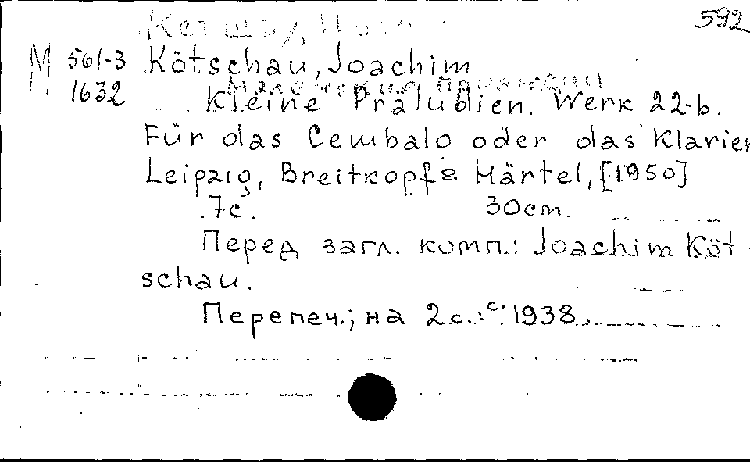 592
Кетшау,
М 561-3
1632
Kötschau, Joachim
Маленькие прелюдии
Kleine Präludien. Werk 22-b.
Für das Cembalo oder das Klavier
Leipzig, Breitkopf & Härtel, [1950]
7с. 30cm.
Перед загл. комп.: Joachim Köt-
schau.
Перепеч.; на 2 с.: "с" 1938.